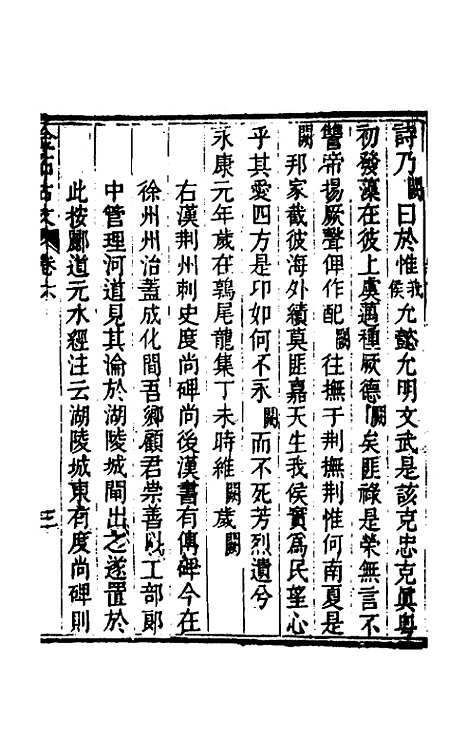 詩乃闕曰於惟我侯允懿允明文武是該克忠克眞粤
初發藻在彼上虞邁種厥德闕矣匪祿是榮無言不
讐帝揚厥聲俾作配闕往撫于荆撫荆惟何南夏是
闕邦家截彼海外績莫匪嘉天生我侯實為民望心
乎其愛四方是卬如何不永闕而不死芳烈遺兮
永康元年歲在鶉尾龍集丁未時維闕歲闕
右漢荆州刺史度尚碑尚後漢書有傳碑今在
徐州州治蓋成化間吾鄉顧君崇善以工部郎
中管理河道見其淪於湖陵城閘出之遂置於
此按酈道元水經注云湖陵城東有度尚碑則
金石古文 卷十 三